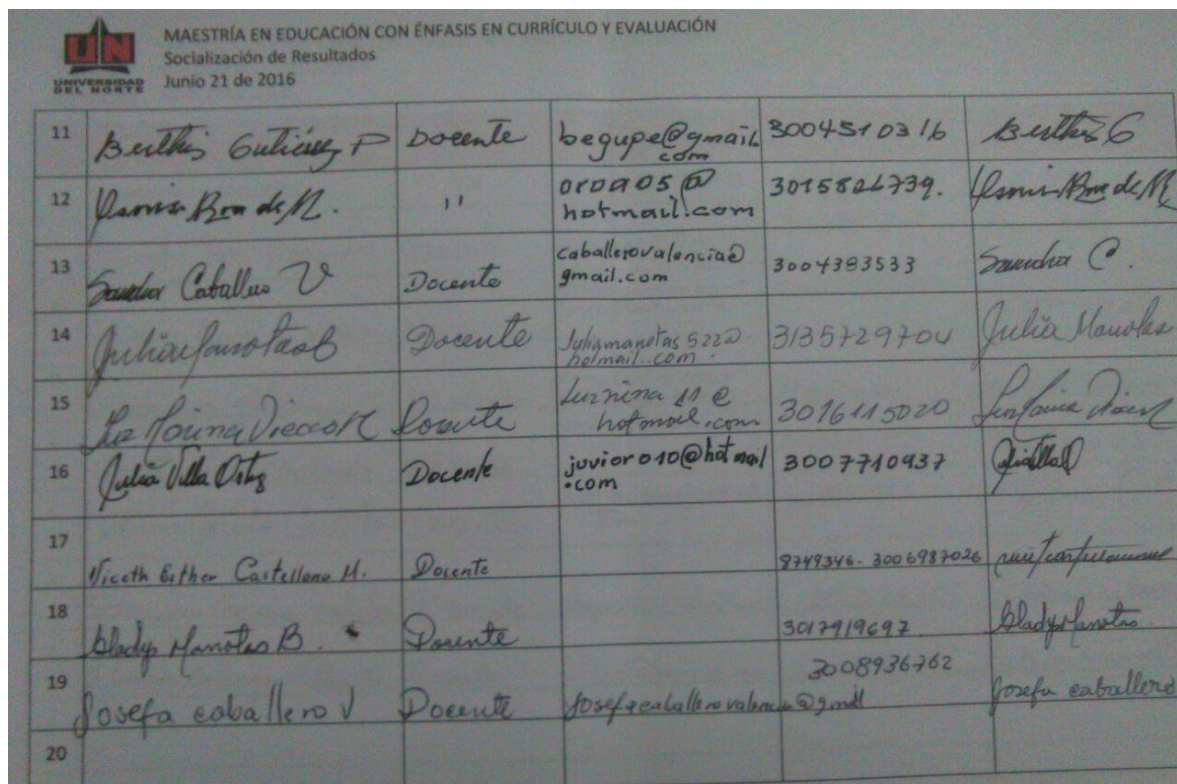 UN
UNIVERSIDAD
DEL NORTE
MAESTRÍA EN EDUCACIÓN CON ÉNFASIS EN CURRÍCULO Y EVALUACIÓN
Socialización de Resultados
Junio 21 de 2016
11 Berthis Gutiérrez P Docente begupe@gmail 3004510316 Berthis G
com
12 de M. " oroa05@ 3015826739. de M
hotmail.com
13 Sandra Caballero V Docente caballerovalencia@ 3004383533 Sandra C.
gmail.com
14 Julia Manotas B Docente Juliamanotas522@ 3135729704 Julia Manotas
hotmail.com.
15 Luz Marina Docente Luznina 11@ 3016115020 Luz Marina
hotmail.com
16 Julia Villa Ortiz Docente juvior010@hotmail 3007710937
.com
17 Viceth Esther Castellano M. Docente 8749346-3006987026
18 Gladys Manotas B. Docente 3017919697 Gladys Manotas
19 Josefa caballero V Docente Josefacaballerovalencia@gmail 3008936762 Josefa caballero
20